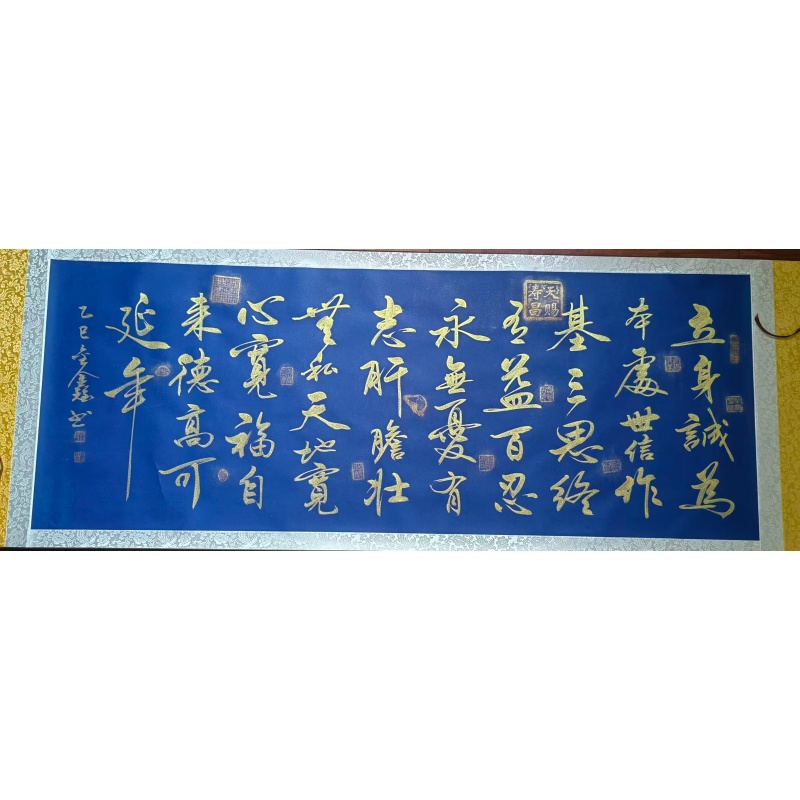 立身誠為
本處世信作
基三思終
有益百忍
永無憂有
志肝膽壯
無私天地寬
心寬福自
来德高可
延年
乙巳 金鑫书
天賜
寿昌